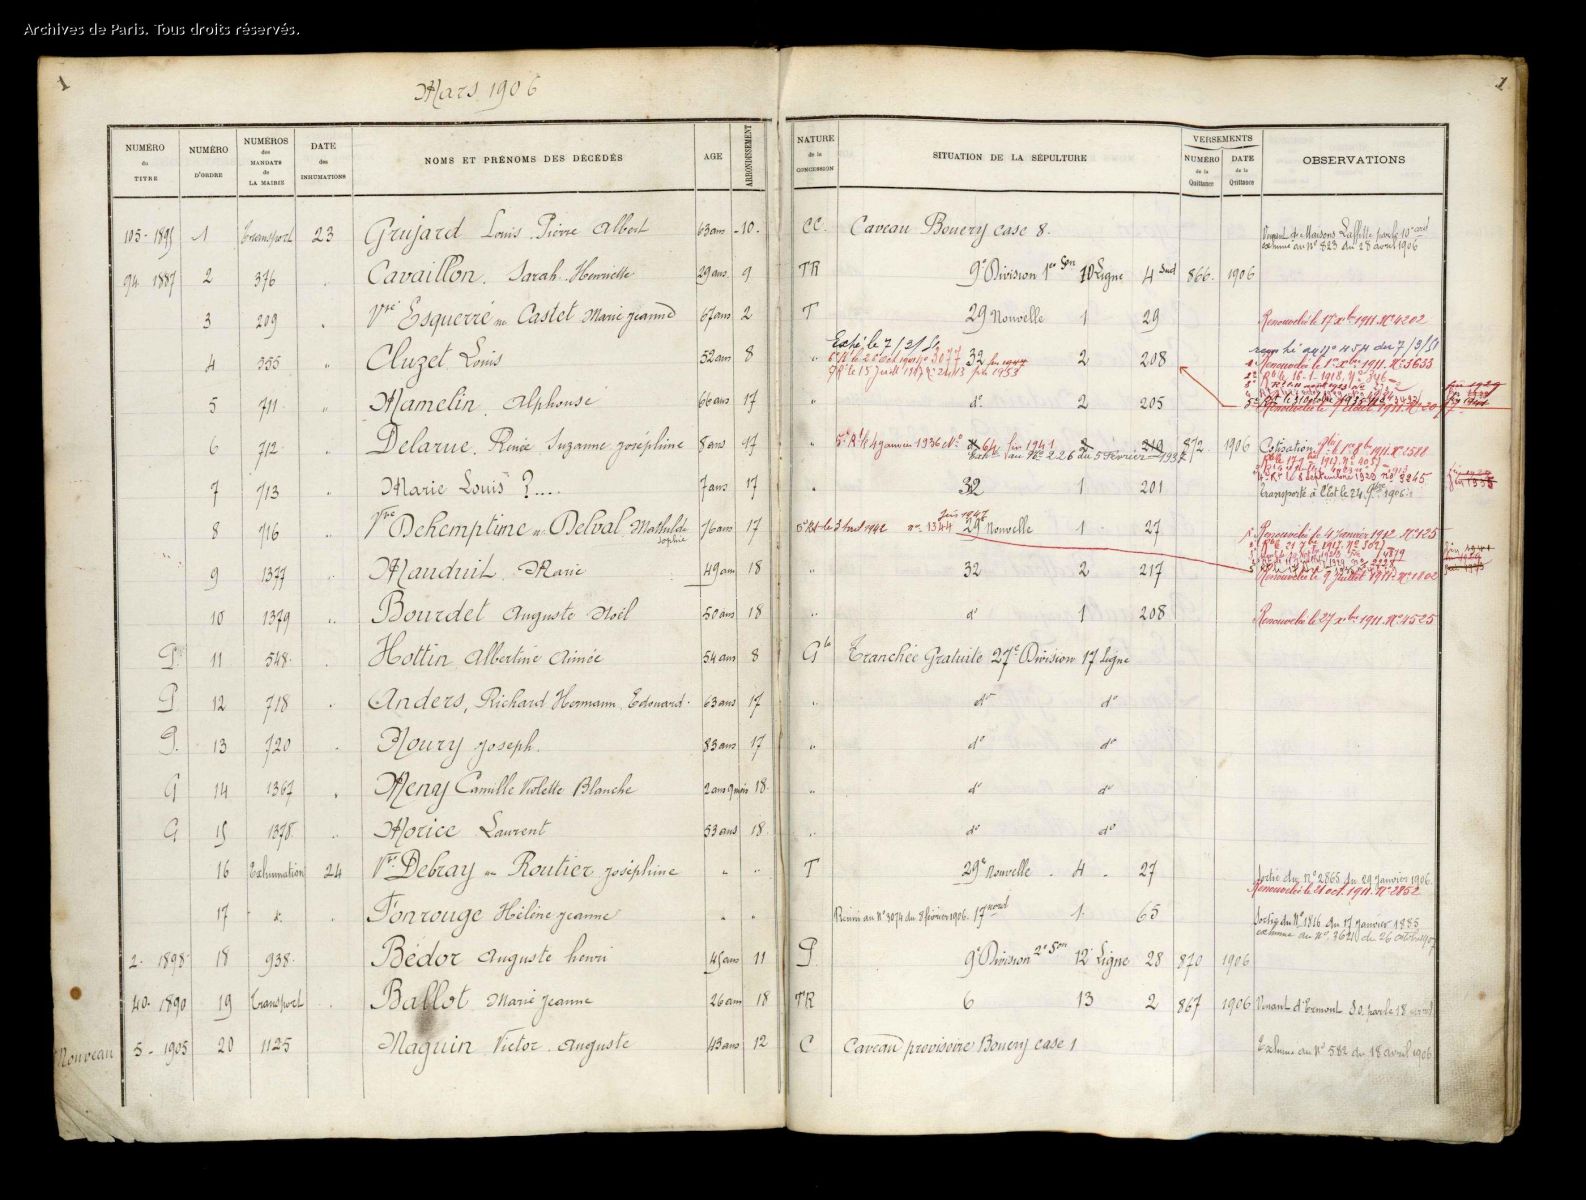 Archives de Paris. Tous droits réservés.
1
Mars 1906
1
NUMÉRO du TITRE
NUMÉRO D'ORDRE
NUMÉROS des MANDATS de LA MAIRIE
DATE des INHUMATIONS
NOMS ET PRÉNOMS DES DÉCÉDÉS
AGE
ARRONDISSEMENT
NATURE de la CONCESSION
SITUATION DE LA SÉPULTURE
VERSEMENTS
NUMÉRO de la Quittance
DATE de la Quittance
OBSERVATIONS
105 - 1895 1 Transport 23 Grujard Louis Pierre Albert 63 ans 10 CC. Caveau Bouery case 8.
Venant de Maisons Laffitte par le 10e ard
exhumé au No 823 du 28 avril 1906
94 1887 2 376 Cavaillon. Sarah Henriette 29 ans 9 TR 9e Division 1re Son 10 Ligne 4 Sud 866. 1906
3 209 Vve Esquerré née Castet Marie Jeanne 67 ans 2 T 29 Nouvelle 1 29 Renouvelée le 17 xbre 1911. No 4202
Exhé le 7/2/51
4 555 Cluzet Louis 52 ans 8 " 32 2 208
Renouvelée le 1er xbre 1911. No 3633
5 711 Hamelin Alphonse 66 ans 17 " do 2 205
6 712 Delarue. Renée Suzanne Joséphine 8 ans 17 " 5e Rt le 4 janvier 1936 No 64 fin 1941 2 219 872. 1906 Cotisation
Exhée au No 226 du 5 Février 1937
7 713 Marie Louis ?.... 7 ans 17 " 32 1 201
4e Rt le 8 septembre 1923 no 3245
Transporté à l'Est le 24. 9bre 1906
8 716 Vve Dehemptinne née Delval Mathilde Sophie 76 ans 17 5e Rt le 3 Avril 1942 no. 1344 fin 1947 29e Nouvelle 1 27
Renouvelée le 4 Janvier 1912 No 125
9 1377 Mauduit Marie 49 ans 18 " 32 2 217
Renouvelée le 9 juillet 1911. No 1802
10 1379 Bourdet Auguste Noël 50 ans 18 " do 1 208 Renouvelée le 27 xbre 1911. No 4525
G 11 548 Hottin Albertine Aimée 54 ans 8 Gte Tranchée Gratuite 27e Division 17 Ligne
G 12 718 Anders, Richard Hermann Edouard. 63 ans 17 " do do
G. 13 720 Noury Joseph. 83 ans 17 " do do
G 14 1367 Meny Camille Violette Blanche 2 ans 9 mois 18 " do do
G 15 1378 Morice Laurent 53 ans 18 " do do
16 Exhumation 24 Vve Debray née Routier Joséphine " " T 29e Nouvelle . 4 . 27
Sortie du no 2865 du 29 Janvier 1906.
Renouvelée le 21 oct. 1911. No 2852
17 d. Fonrouge Hélène Jeanne " " Réuni au No 3074 du 8 février 1906. 17 nord 1. 65
Sortie du No 1816 du 17 janvier 1885
exhumée au No 3621 du 26 octobre 1907
2 - 1898 18 938 Bédor Auguste henri 45 ans 11 P. 9e Division 2e Son 12 Ligne 28 870 1906
40. 1890 19 Transport Ballot Marie Jeanne 26 ans 18 TR 6 13 2 867 1906 Venant d'Ermont S.O. par le 18e arrdt
Nouveau 5 - 1905 20 1125 Maguin Victor Auguste 43 ans 12 C Caveau provisoire Bouery case 1 Exhumé au No 582 du 18 avril 1906